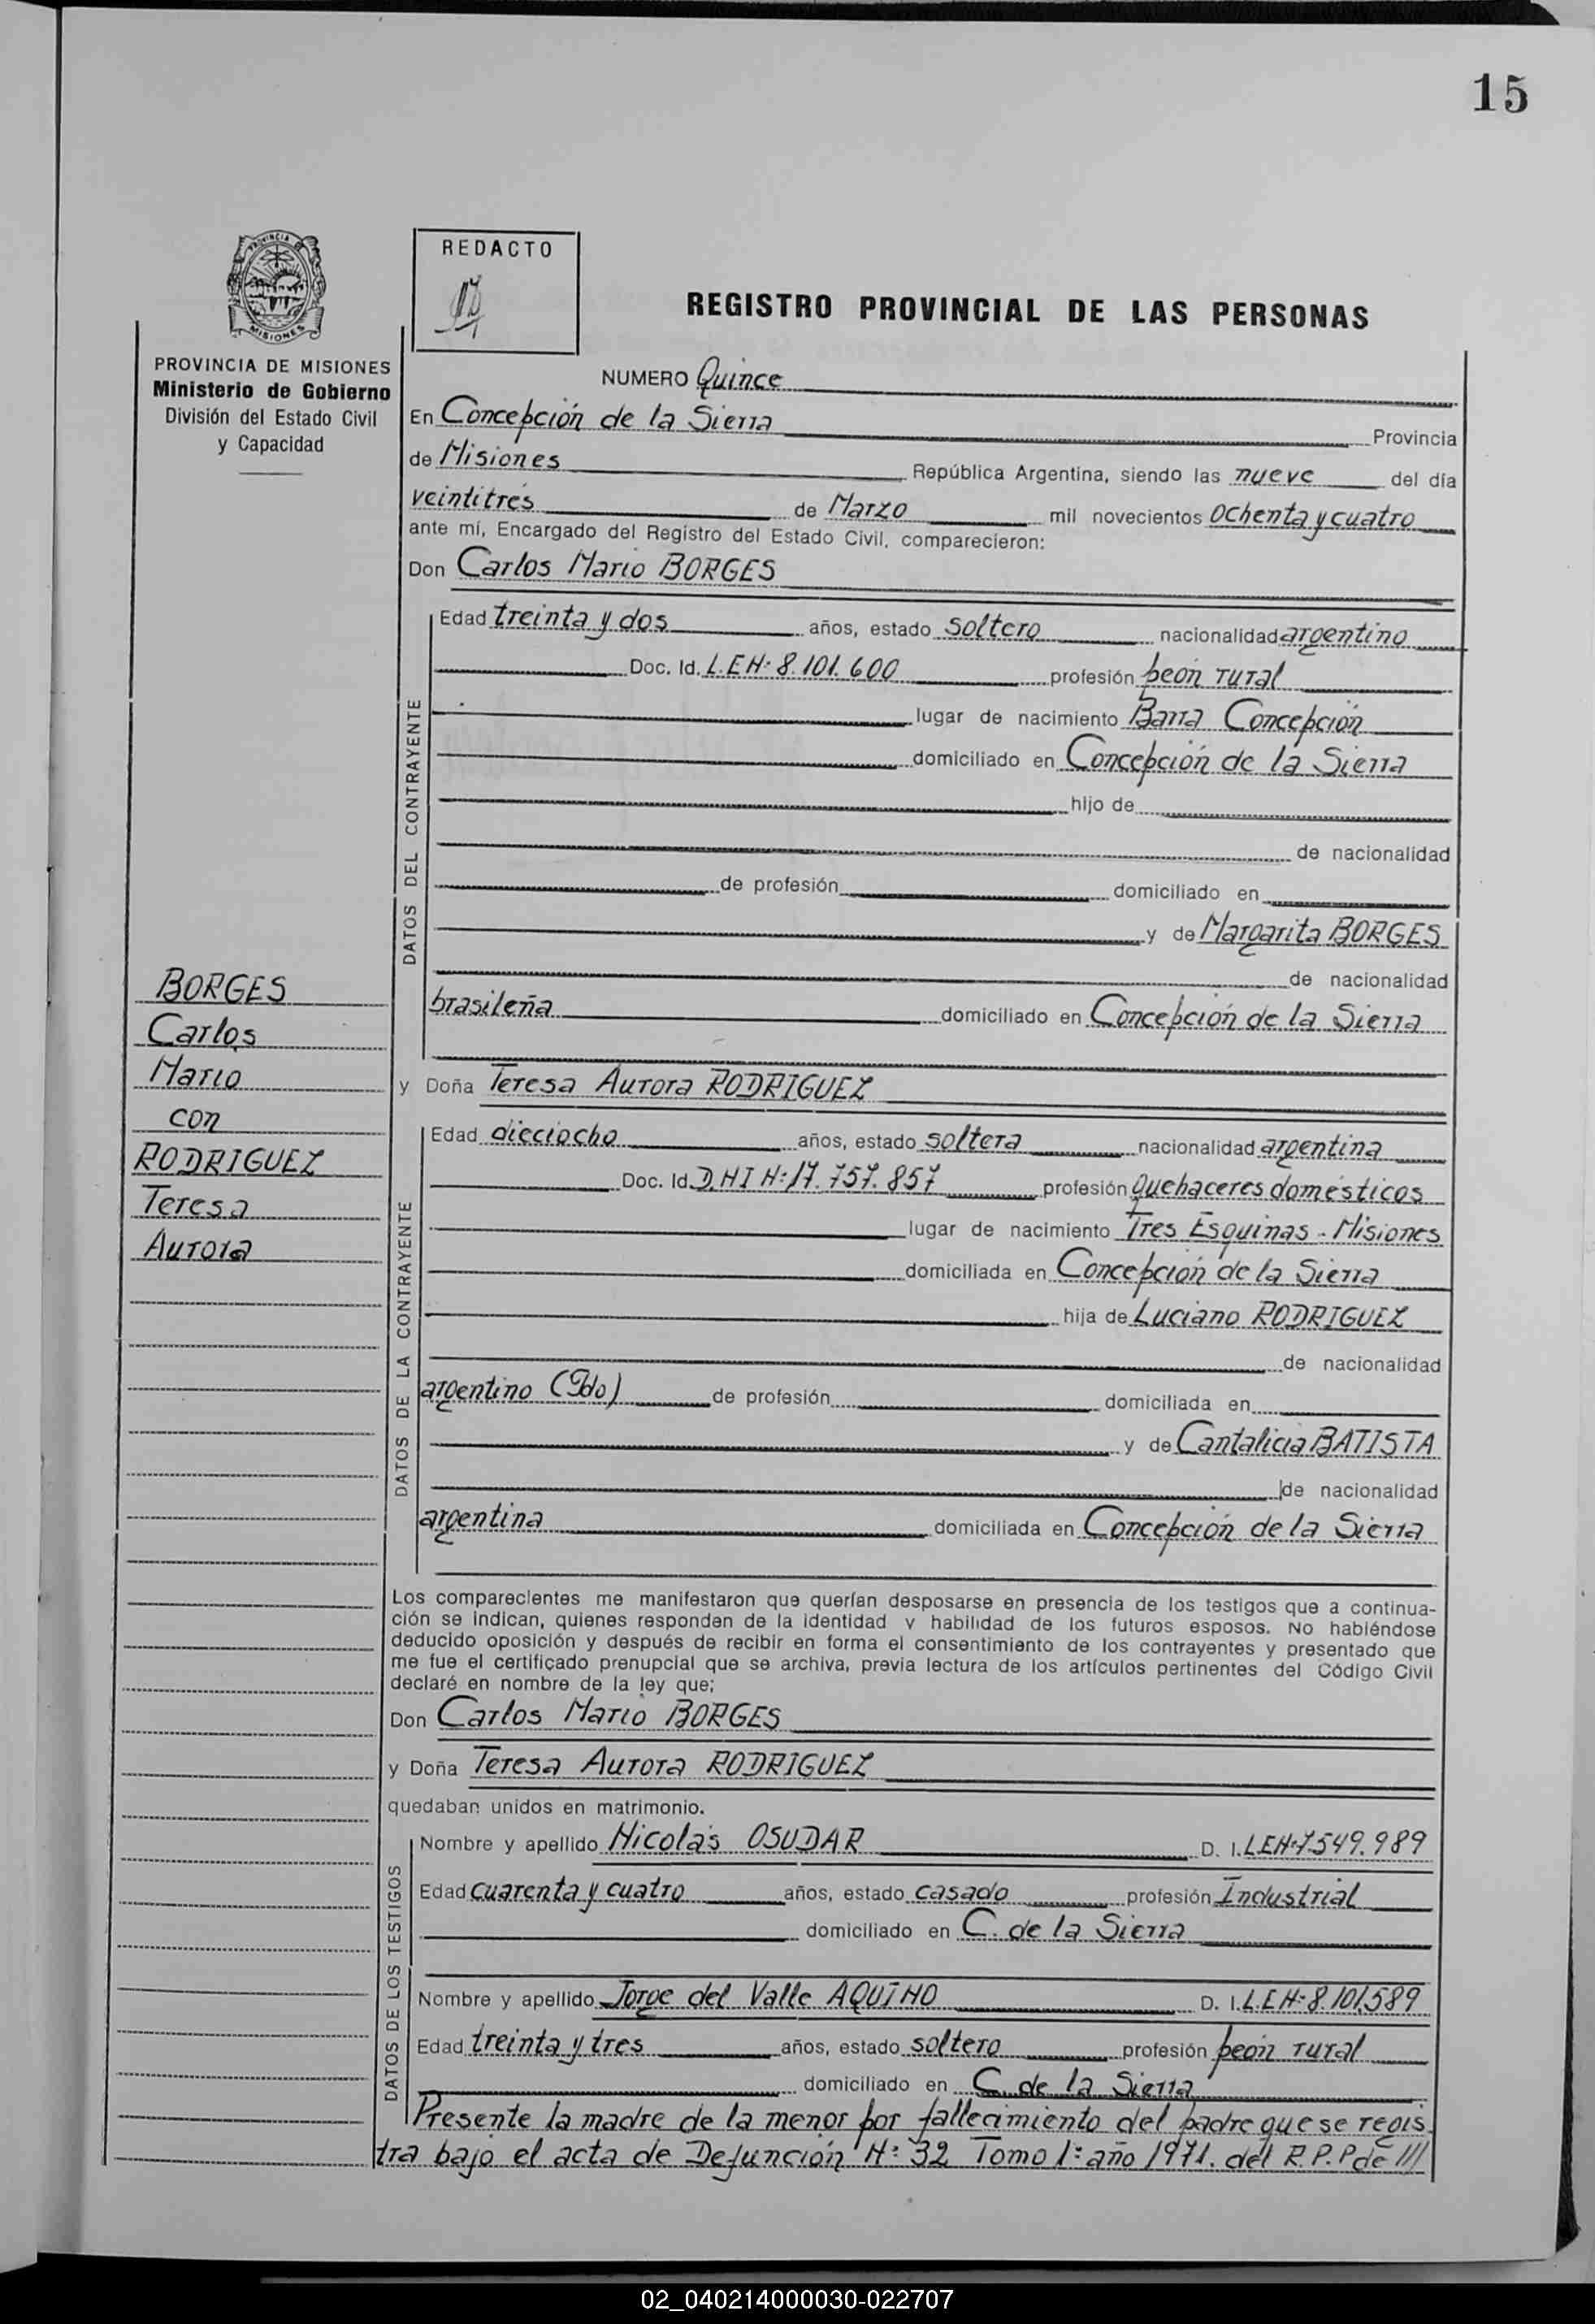 15
PROVINCIA DE
MISIONES
REDACTO
REGISTRO PROVINCIAL DE LAS PERSONAS
PROVINCIA DE MISIONES
Ministerio de Gobierno
División del Estado Civil
y Capacidad
NUMERO Quince
En Concepción de la Sierra Provincia
de Misiones República Argentina, siendo las nueve del día
veintitres de Marzo mil novecientos Ochenta y cuatro
ante mí, Encargado del Registro del Estado Civil, comparecieron:
Don Carlos Mario BORGES
DATOS DEL CONTRAYENTE
Edad treinta y dos años, estado soltero nacionalidad argentino
Doc. Id. L.E.N: 8.101.600 profesión peón rural
lugar de nacimiento Barra Concepción
domiciliado en Concepción de la Sierra
hijo de
de nacionalidad
de profesión domiciliado en
y de Margarita BORGES
de nacionalidad
brasileña domiciliado en Concepción de la Sierra
BORGES
Carlos
Mario
con
RODRIGUEZ
Teresa
Aurora
y Doña Teresa Aurora RODRIGUEZ
DATOS DE LA CONTRAYENTE
Edad dieciocho años, estado soltera nacionalidad argentina
Doc. Id. D.N I N: 17.757.857 profesión Quehaceres domésticos
lugar de nacimiento Tres Esquinas - Misiones
domiciliada en Concepción de la Sierra
hija de Luciano RODRIGUEZ
de nacionalidad
argentino (Fdo) de profesión domiciliada en
y de Cantalicia BATISTA
de nacionalidad
argentina domiciliada en Concepción de la Sierra
Los comparecientes me manifestaron que querían desposarse en presencia de los testigos que a continua-
ción se indican, quienes responden de la identidad y habilidad de los futuros esposos. No habiéndose
deducido oposición y después de recibir en forma el consentimiento de los contrayentes y presentado que
me fue el certificado prenupcial que se archiva, previa lectura de los artículos pertinentes del Código Civil
declaré en nombre de la ley que;
Don Carlos Mario BORGES
y Doña Teresa Aurora RODRIGUEZ
quedaban unidos en matrimonio.
DATOS DE LOS TESTIGOS
Nombre y apellido Nicolás OSUDAR D. I. L.E.N: 7.549.989
Edad cuarenta y cuatro años, estado casado profesión Industrial
domiciliado en C. de la Sierra
Nombre y apellido Jorge del Valle AQUINO D. I. L.E.N: 8.101.589
Edad treinta y tres años, estado soltero profesión peón rural
domiciliado en C. de la Sierra
Presente la madre de la menor por fallecimiento del padre que se regis
tra bajo el acta de Defunción N: 32 Tomo 1: año 1971. del R.P.P de ///
02_040214000030-022707